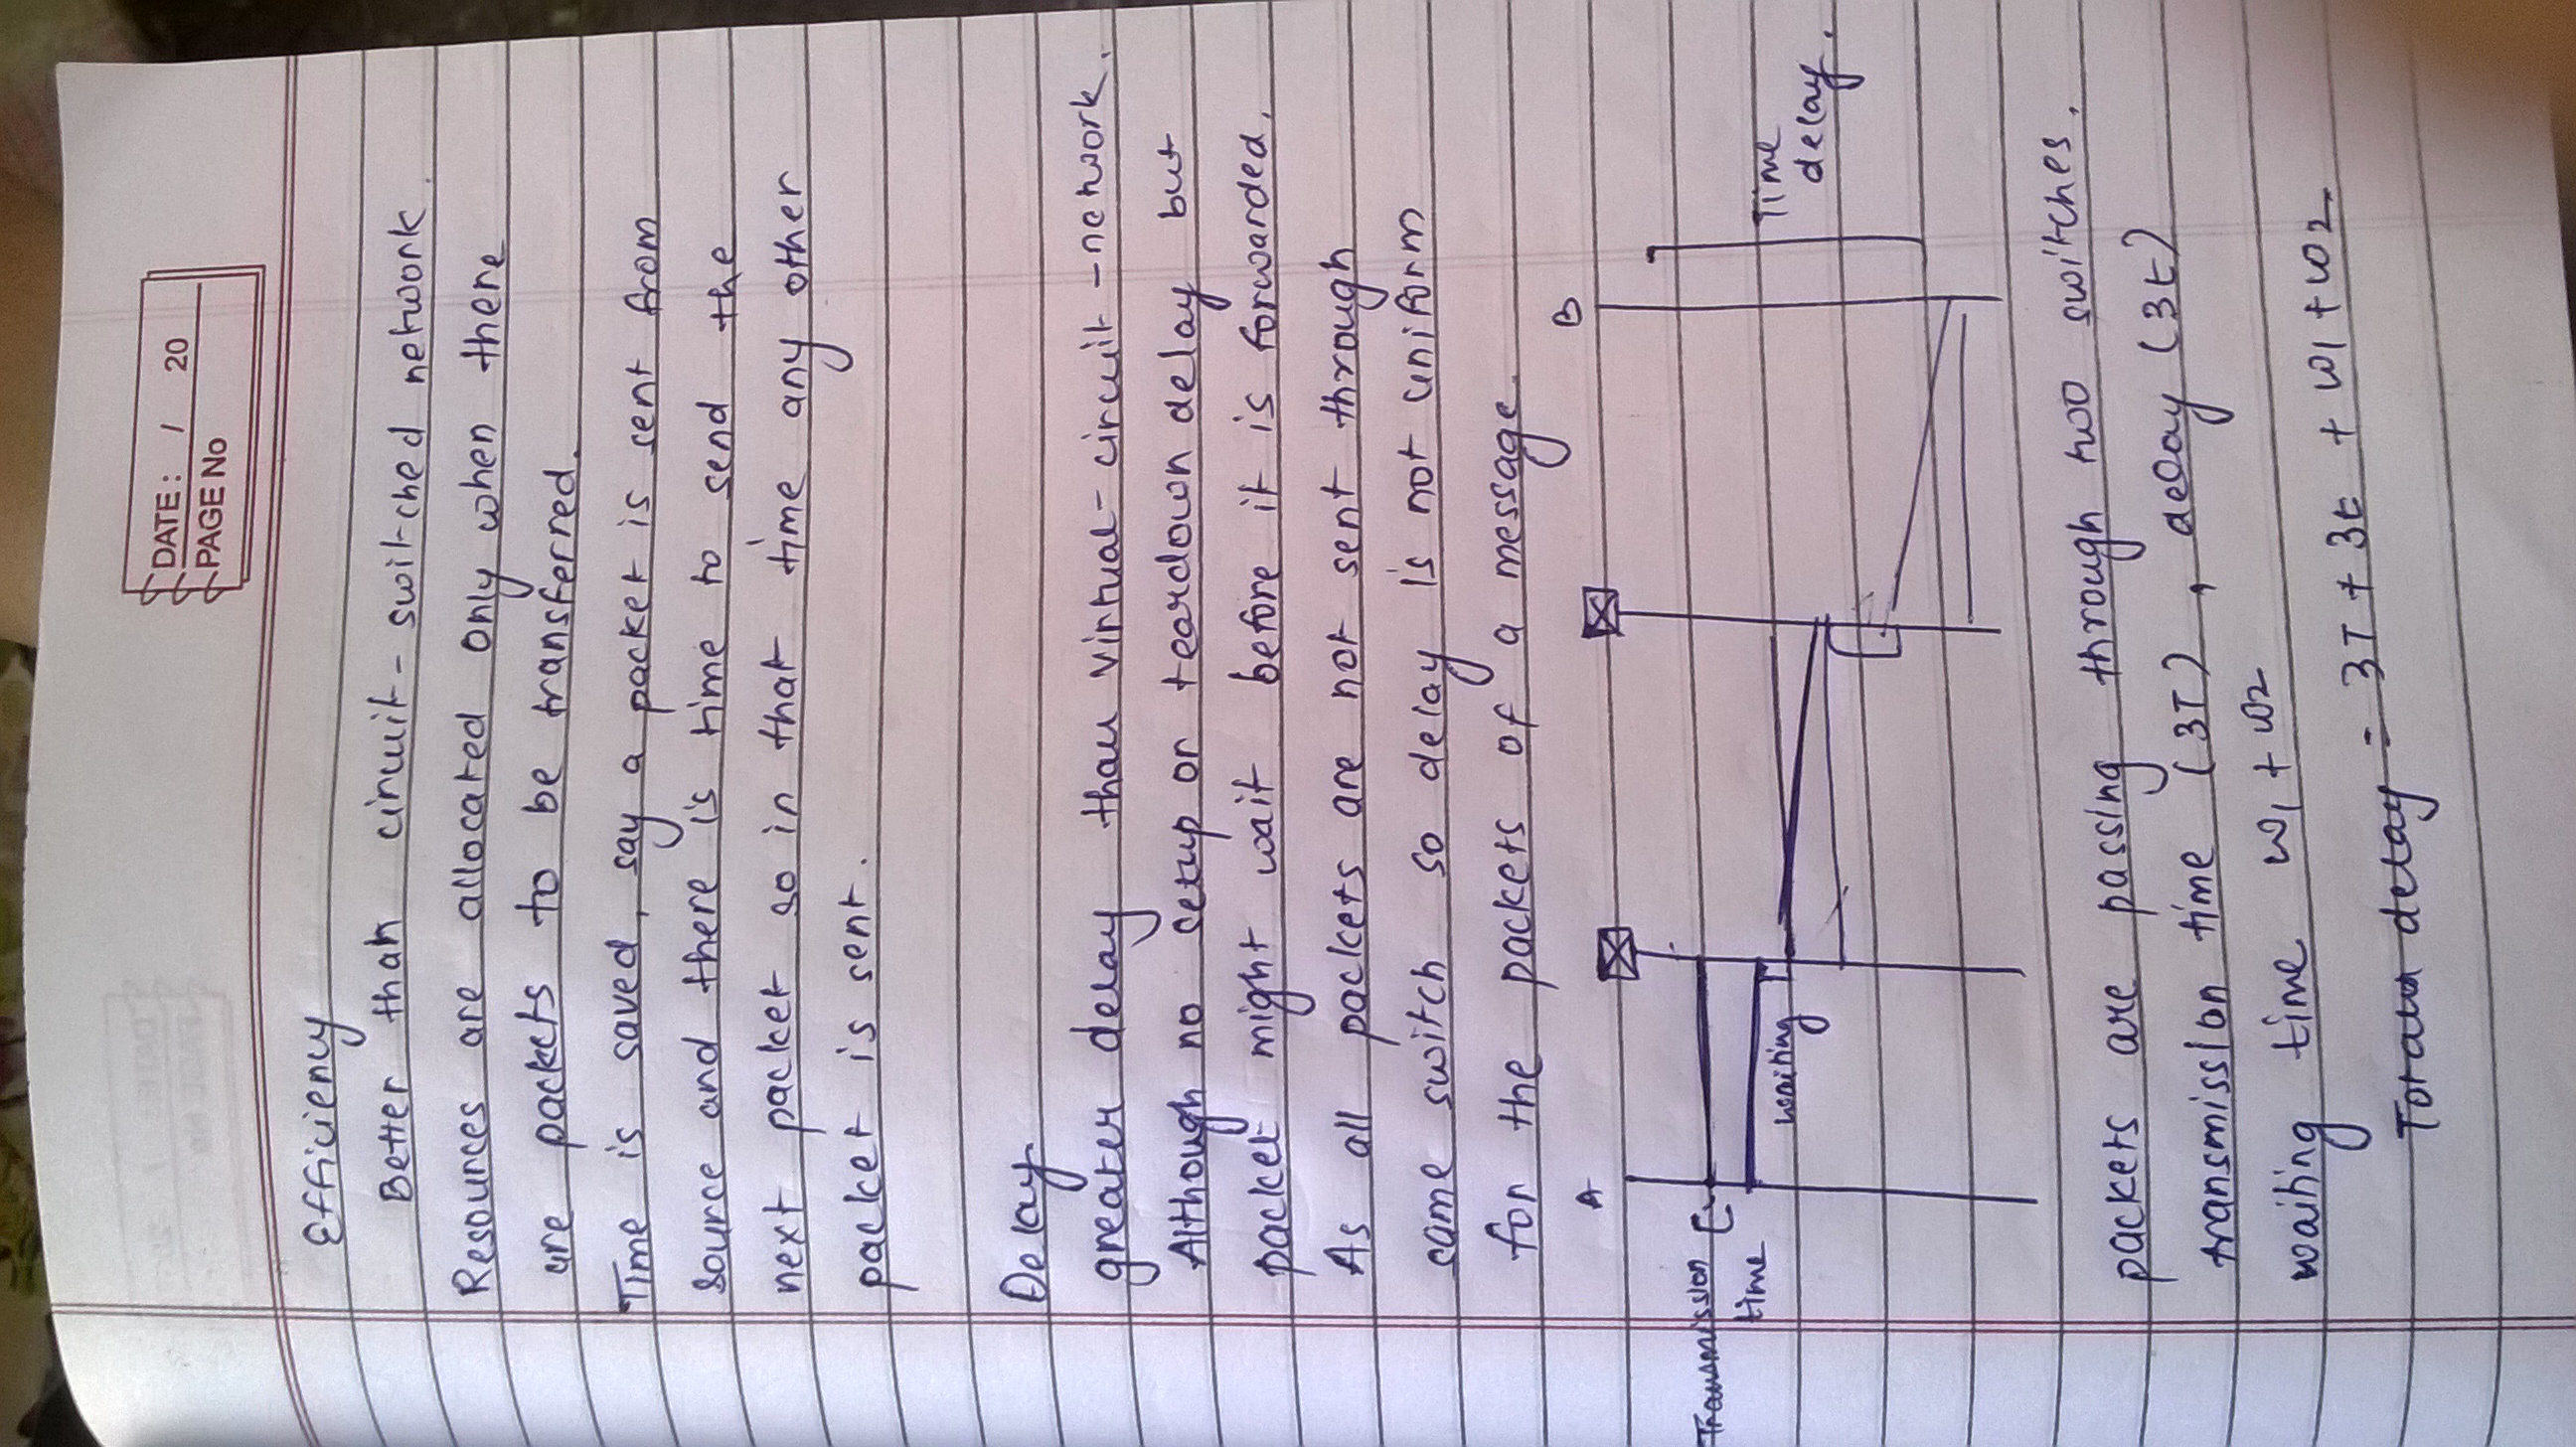 DATE: / 20
PAGE No
Efficiency
Better than circuit-switched network.
Resources are allocated only when there
are packets to be transferred.
Time is saved, say a packet is sent from
source and there is time to send the
next packet so in that time any other
packet is sent.
Delay
greater delay than virtual-circuit-network.
Although no setup or teardown delay but
packet might wait before it is forwarded.
As all packets are not sent through
same switch so delay is not uniform
for the packets of a message.
A B
Transmission
time
waiting
Time
delay.
packets are passing through two switches.
transmission time (3T), delay (3t)
waiting time w1 + w2
Total delay = 3T + 3t + w1 + w2